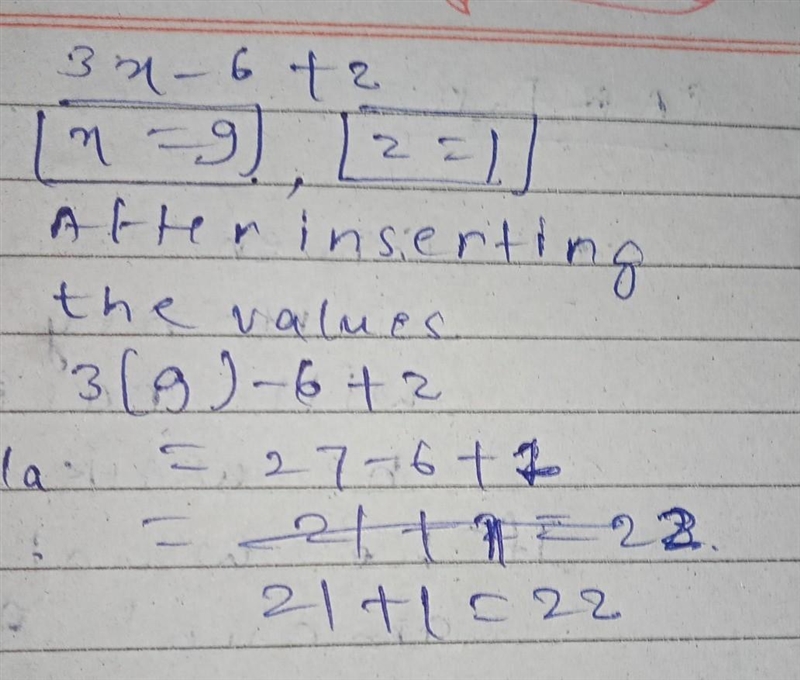 3x - 6 + z
x = 9, z = 1
After inserting
the values
3(9) - 6 + z
la = 27 - 6 + 1
= 21 + 1 = 22.
21 + 1 = 22